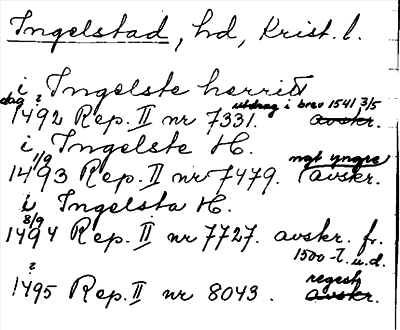 Ingelstad, hd, Krist. l.
i Ingelste herrit
dag ? utdrag i brev 1541 3/5
1492 Rep. II nr 7331. avskr.
i Ingelste H.
1/9 ngt yngre
1493 Rep. II nr 7479. (avskr.
i Ingelsta H.
8/9
1494 Rep. II nr 7727. avskr. fr.
1500-t. u.d.
? regest
1495 Rep. II nr 8043. avskr.